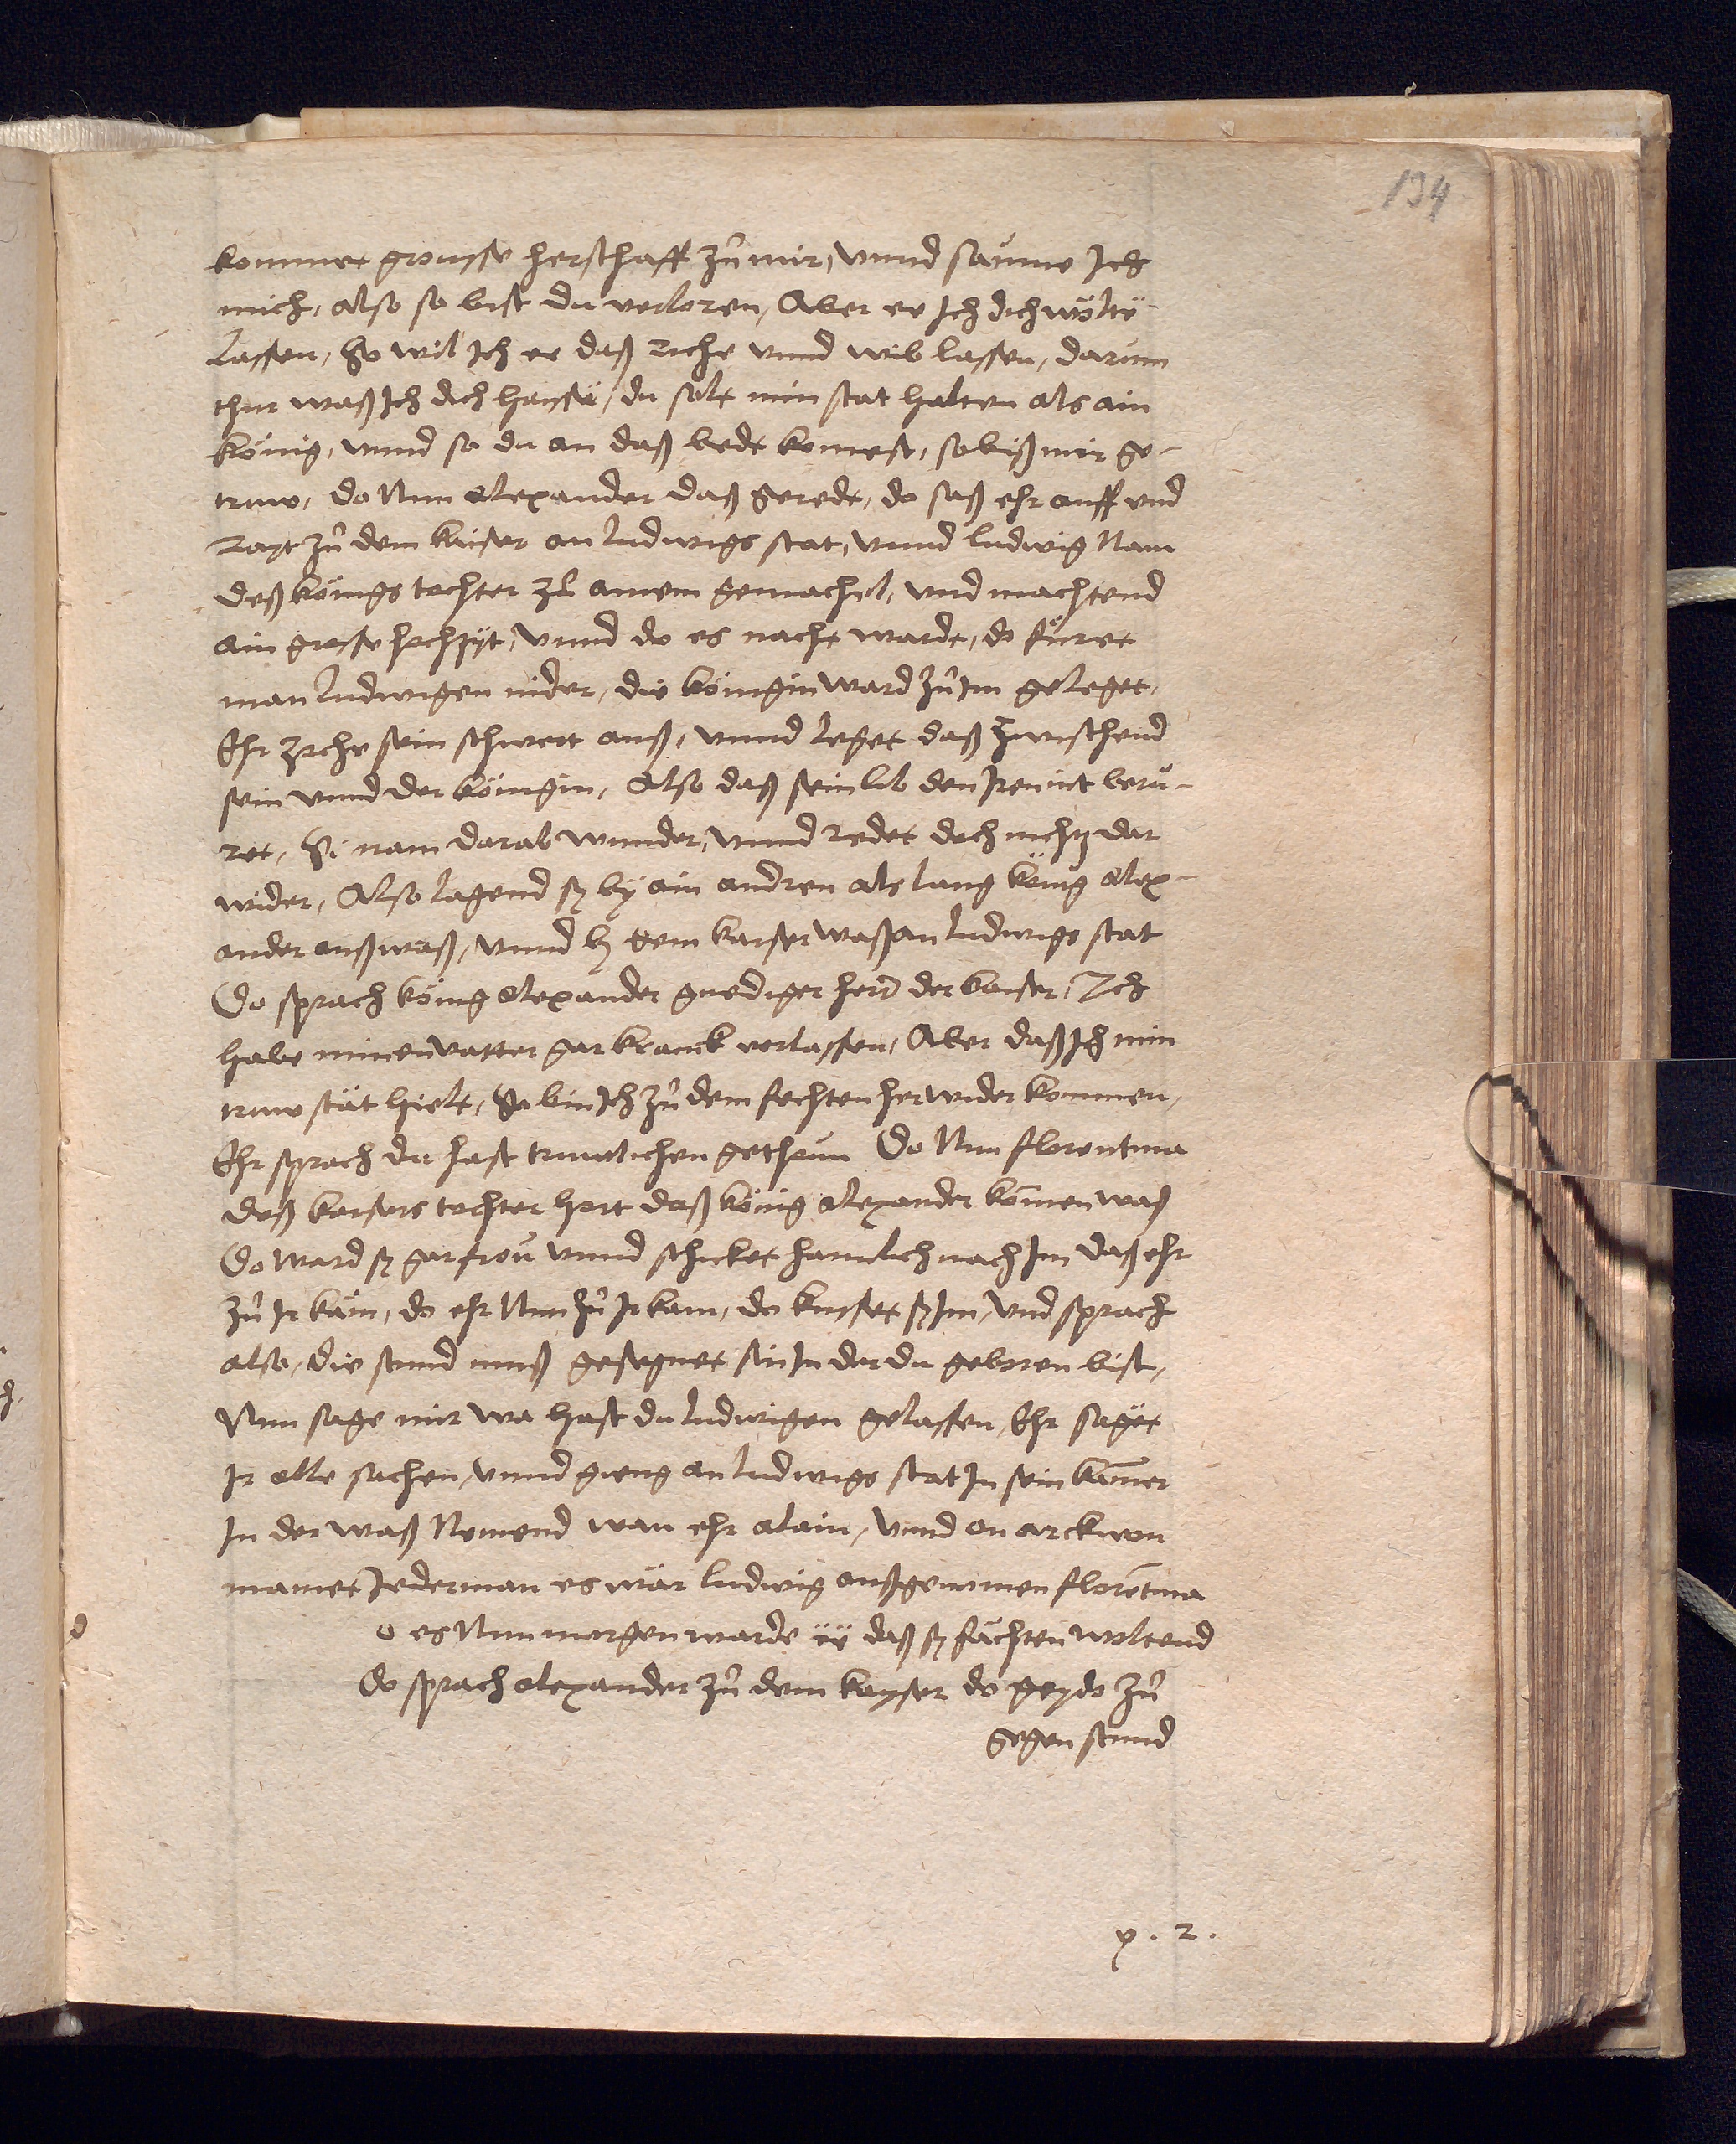 134
kommet grousse herschafft zů mir, vnnd saume Ich
mich, also so bist du verloren, Aber ee Ich dich wölte
lassen, So wil Ich ee daß riche vnnd wib lassen, darum
thur waß Ich dich haysse, du solt min stat halten als ain
könig, vnnd so du an daß bedt komest, so biß mir ge-
truw, do Nun alexander daß geredt, do saß ehr auff vnd
Rayt zů dem kaiser an ludwigs stat, vnnd ludwig Nam
deß königs tochter zů ainem gemachel, vnd machtend
ain grosse hochzyt, vnnd do es nacht wardt, do fůret
man ludwigen nider, die königin ward zů im geleget,
Ehr zoche sein schwert auß, vnnd leget daß zwischend
sein vnnd der königin, Also daß sein lib den Iren nit berů-
ret, Si nam darab wunder, vnnd redet doch nichtz dar
wider, Also lagend sy by ain andren als lang könig alex-
ander außwaß, vnnd by dem kaiser waß an ludwigs stat
Do sprach könig alexander gnediger herr der kaiser, Ich
habe minen vatter gar kranck verlassen, Aber daß Ich min
truw stät hielt, So bin Ich zů dem fechten her wider kommen,
Ehr sprach du hast truwlichen gethaun Do Nun florentina
deß kaisers tochter hort daß könig alexander komen waß
Do ward sy gar frou vnnd schicket hamlich nach Im daß ehr
zů Ir käm, do ehr Nun zů Ir kam, do kusset sy Im, vnd sprach
also, die stund muß gesegnet sin In der du geboren bist,
Nun sage mir wa hast du ludwigen gelassen, Ehr saget
Ir alle sachen, vnnd gieng an ludwigs stat In sein kamer
In der waß Nemend wan ehr alain, vnnd on arckwon
mainet Jederman es wär ludwig außgenomen florentina
o es Nun morgen warde ee daß sy fächten woltend
Do sprach alexander zů dem kayser do geydo zů
gegen stund
p. 2.